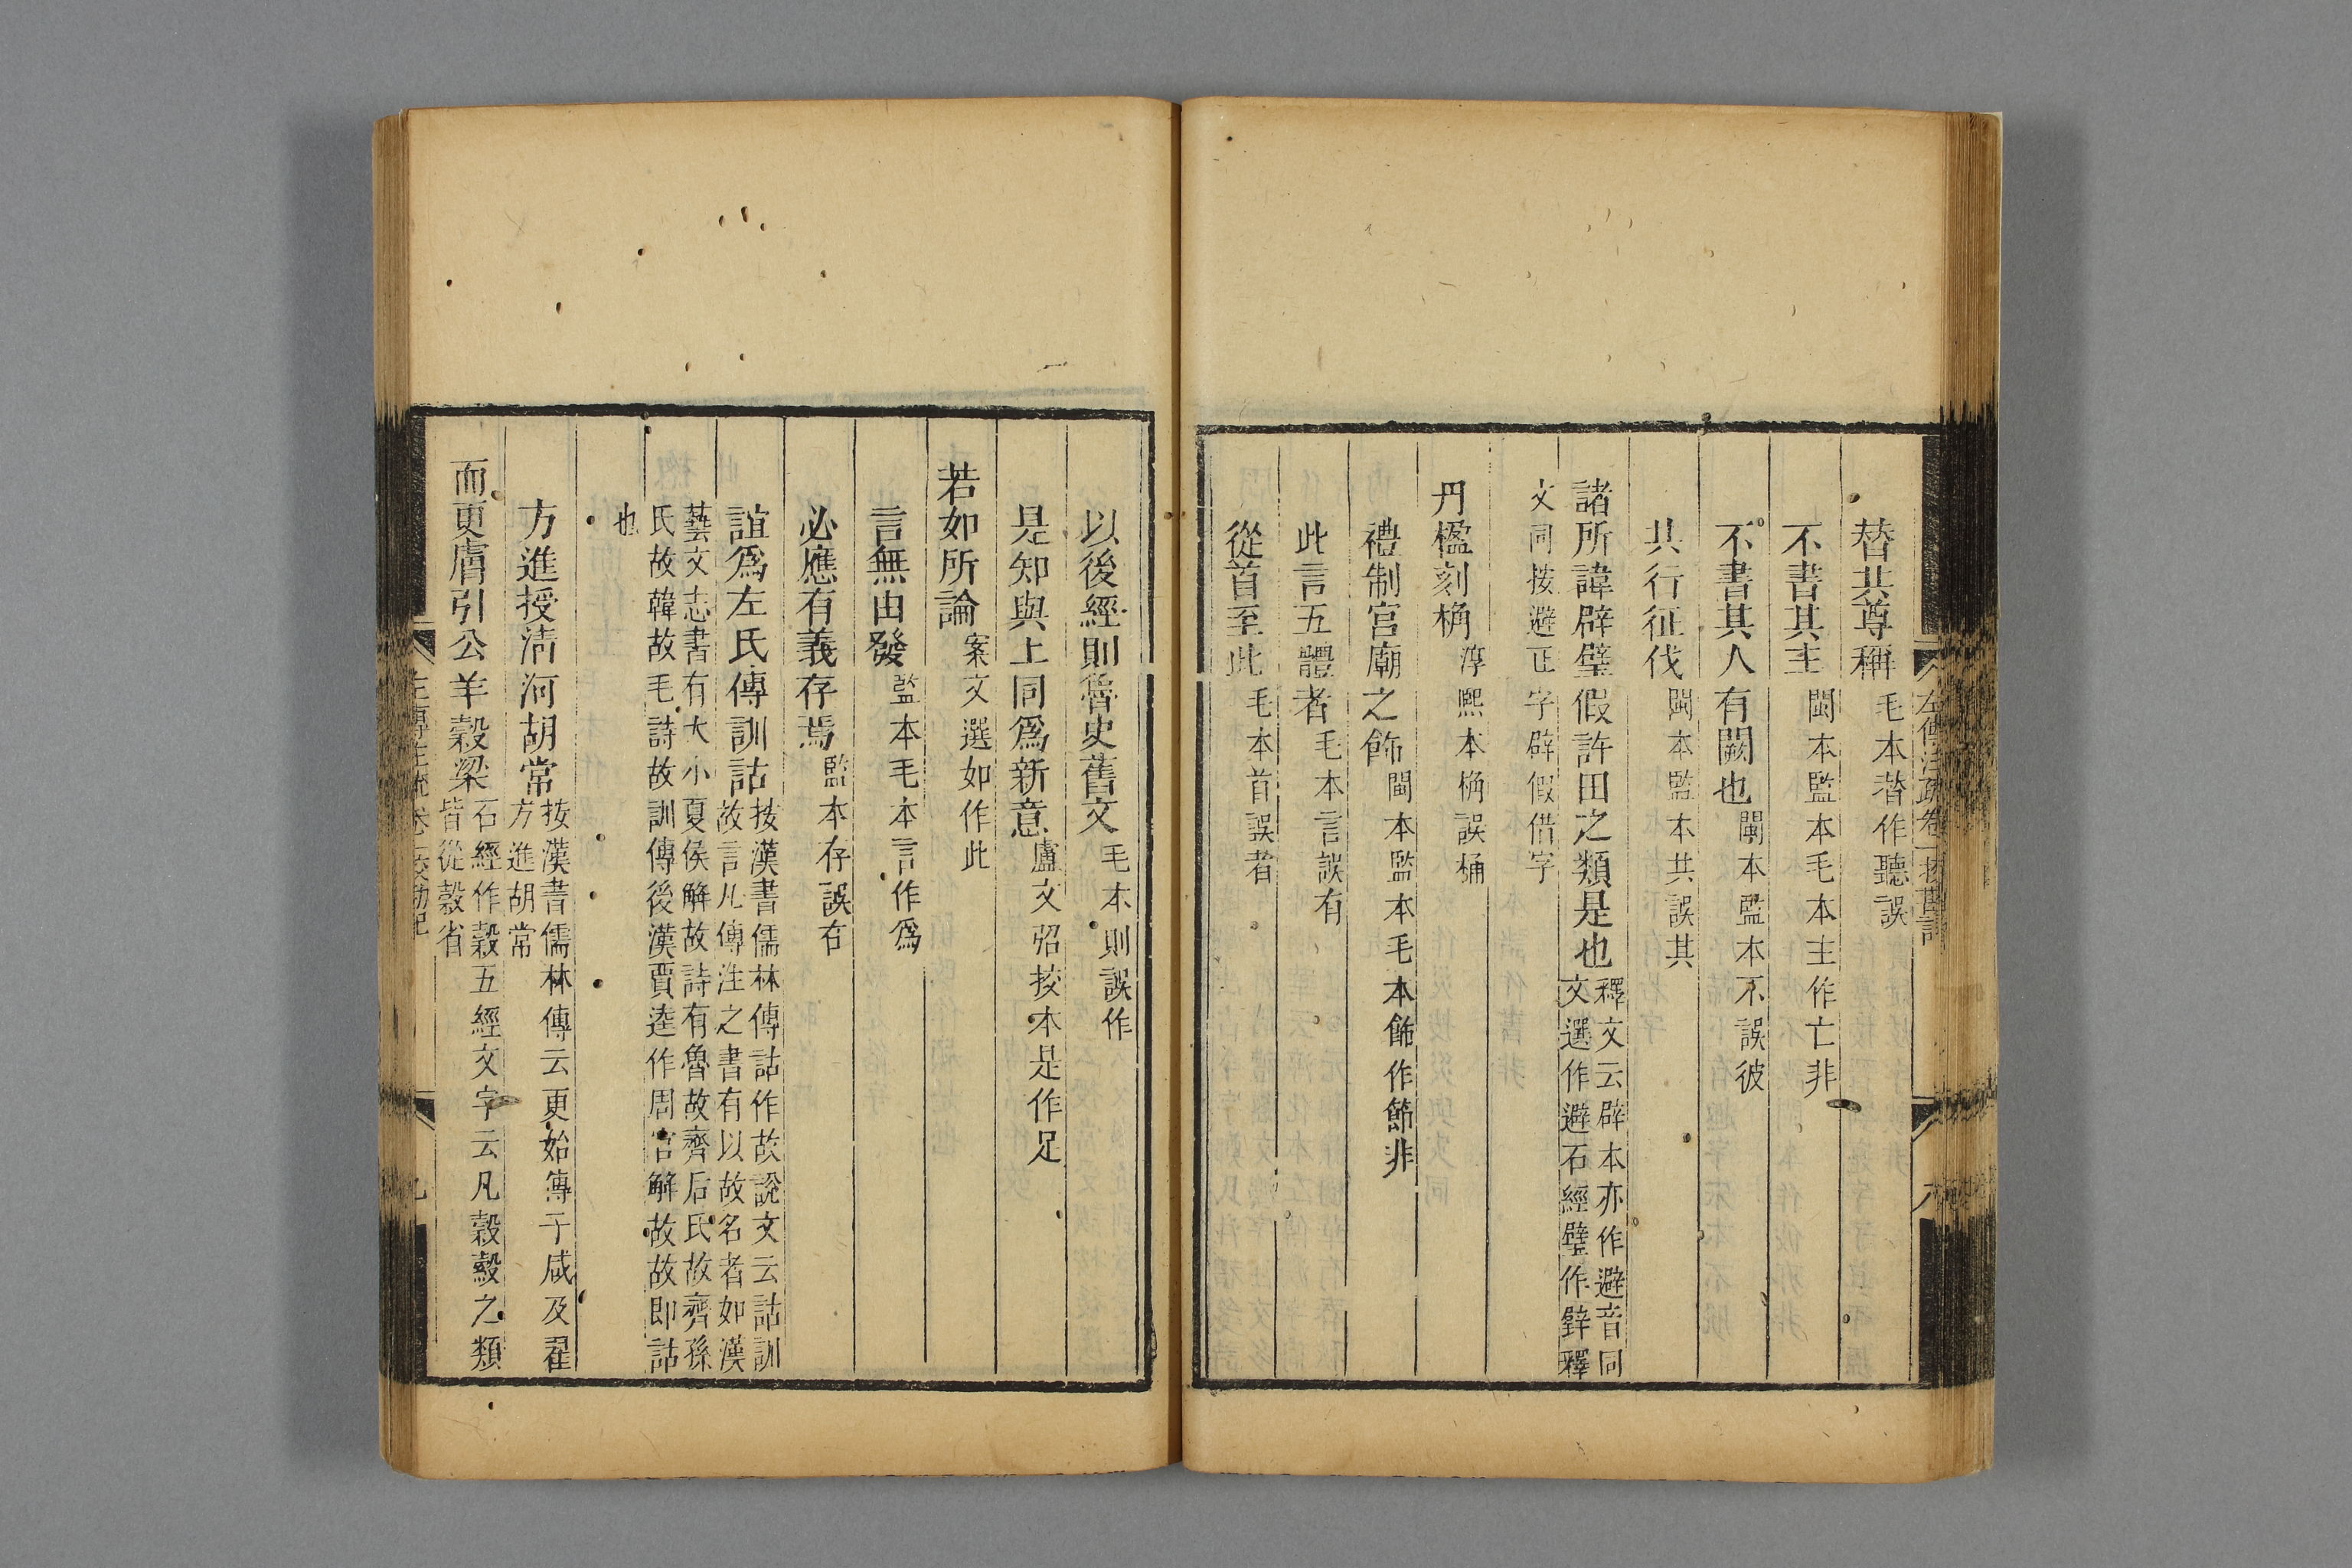 替其尊稱毛本濳作聽誤
不書其主閩本監本毛本主作亡非
不書其人有闕也閩本監本不誤彼
共行征伐閩本監本共誤其
諸所諱辟璧假許田之類是也釋文云辟本亦作避音同
文選作避石經璧作辟釋
文同按避正字辟假借字
丹楹刻桷淳熙本桷誤桶
禮制宮廟之飾閩本監本毛本飾作節非
此言五體者毛本言誤有
從首至此毛本首誤者
以後經則魯史舊文毛本則誤作
是知與上同爲新意盧文弨挍本是作足
若如所論案文選如作此
言無由發監本毛本言作爲
必應有義存焉監本存誤在
誼爲左氏傳訓詁按漢書儒林傳詁作故說文云詁訓
故言凡傳注之書有以故名者如漢
藝文志書有大小夏侯解故詩有魯故齊后氏故齊孫
氏故韓故毛詩故訓傳後漢賈逵作周官解故故即詁
也
方進授淸河胡常按漢書儒林傳云更始傳子咸及翟
方進胡常
而更膚引公羊穀梁石經作穀五經文字云凡穀縠之類
皆從㱿省